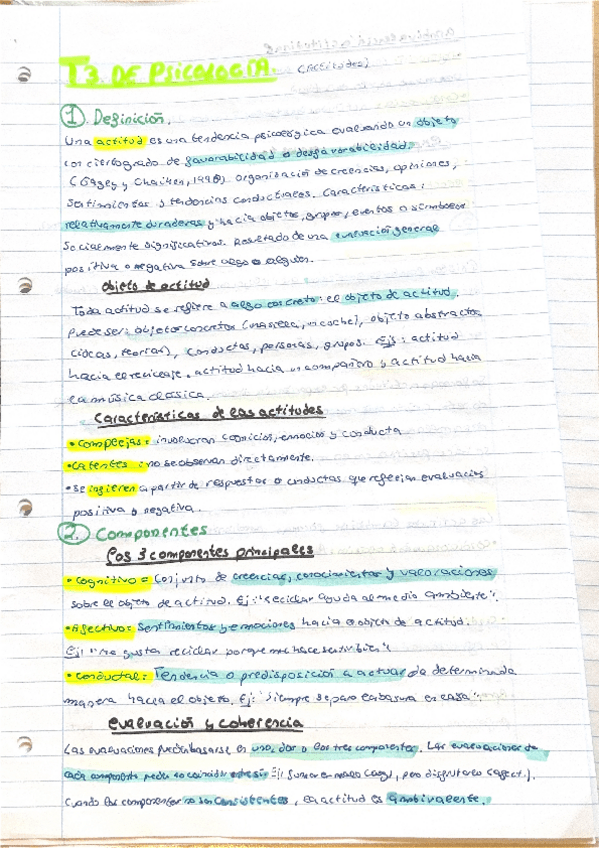 T3. DE PSICOLOGÍA. (Actitudes)
1. Definición.
Una actitud es una tendencia psicológica evaluando un objeto
con cierto grado de favorabilidad o desfavorabilidad.
(Eagey y Chaiken, 1998). Organización de creencias, opiniones,
sentimientos y tendencias conductuales. Características:
relativamente duraderas y hacia objetos, grupos, eventos o símbolos
socialmente significativos. Resultado de una evaluación general
positiva o negativa sobre algo o alguien.
Objeto de actitud
Toda actitud se refiere a algo concreto: el objeto de actitud.
Puede ser: objetos concretos (una silla, un coche), objeto abstractos
(ideas, teorías), conductas, personas, grupos. Ej: actitud
hacia el reciclaje, actitud hacia un compañero y actitud hacia
la música clásica.
Características de las actitudes
• Complejas: involucran cognición, emoción y conducta
• Latentes: no se observan directamente.
• Se infieren a partir de respuestas o conductas que reflejan evaluación
positiva o negativa.
2. Componentes
Los 3 componentes principales
• Cognitivo = Conjunto de creencias, conocimientos y valoraciones
sobre el objeto de actitud. Ej: "Reciclar ayuda al medio ambiente".
• Afectivo: Sentimientos y emociones hacia el objeto de actitud.
Ej: "me gusta reciclar porque me hace sentir bien"
• Conductal: Tendencia o predisposición a actuar de determinada
manera hacia el objeto. Ej: "Siempre separo la basura en casa".
Evaluación y coherencia
Las evaluaciones pueden basarse en uno, dos o los tres componentes. Las evaluaciones de
cada componente pueden no coincidir entre sí. Ej: fumar es malo (cog), pero disfrutarlo (afect.).
Cuando los componentes no son consistentes, la actitud es ambivalente.